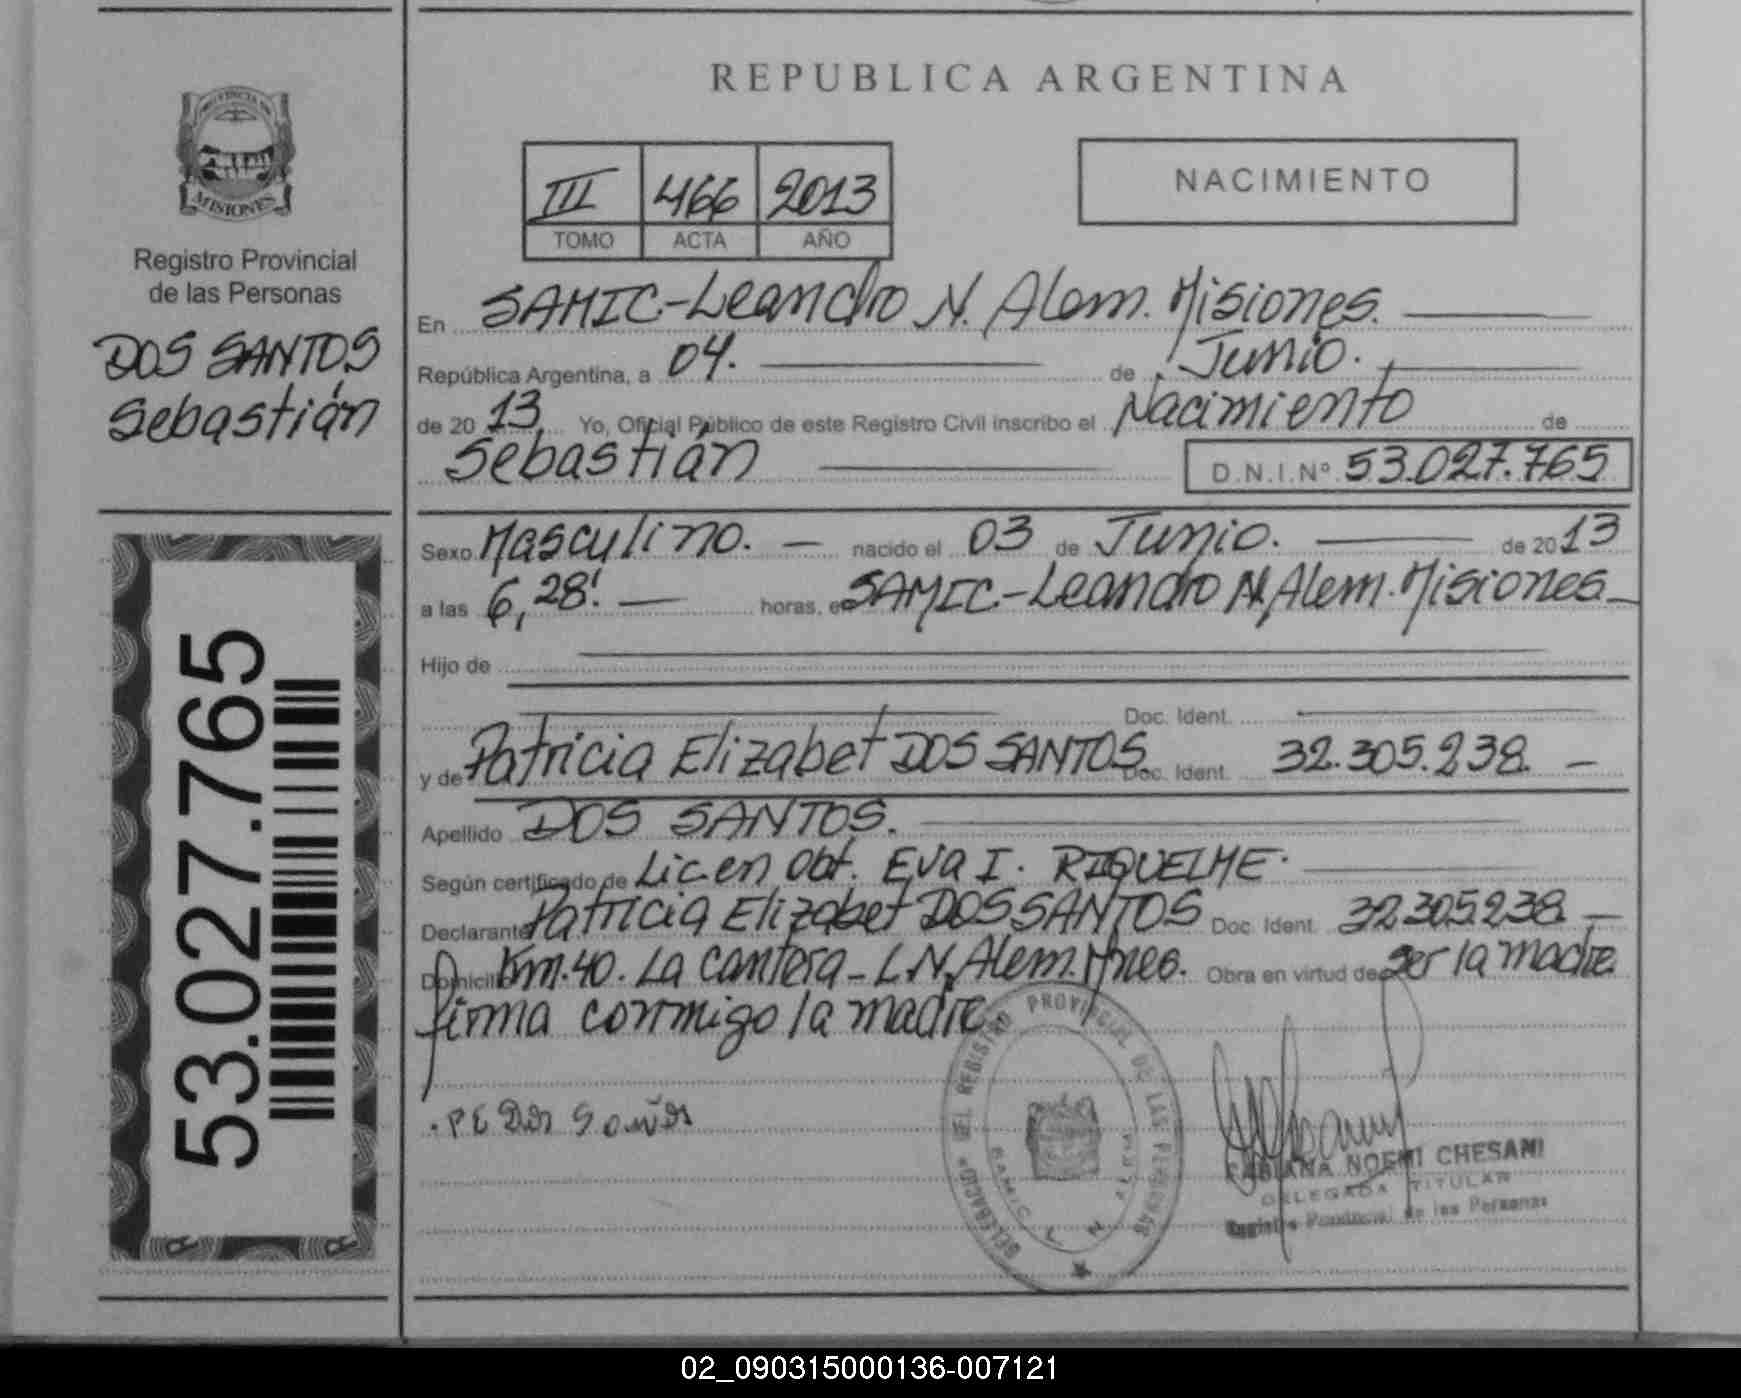 REPUBLICA ARGENTINA
PROVINCIA DE
MISIONES
Registro Provincial
de las Personas
DOS SANTOS
Sebastián
53.027.765
III 466 2013
TOMO ACTA AÑO
NACIMIENTO
En SAMIC-Leandro N. Alem. Misiones.
República Argentina, a 04. de Junio.
de 2013 Yo, Oficial Público de este Registro Civil inscribo el Nacimiento de
Sebastián D.N.I.Nº 53.027.765
Sexo Masculino. nacido el 03 de Junio. de 2013
a las 6,28! horas, en SAMIC-Leandro N. Alem. Misiones
Hijo de
Doc. Ident.
y de Patricia Elizabet DOS SANTOS Doc. Ident. 32.305.238.
Apellido DOS SANTOS.
Según certificado de Licen Obt. Eva I. RIQUELME.
Declarante Patricia Elizabet DOS SANTOS Doc. Ident. 32.305.238.
Domicilio Km. 40. La Cantera - L.N. Alem. Mnes. Obra en virtud de ser la madre.
firma conmigo la madre.
DELEGACIO DEL REGISTRO PROVINCIAL DE LAS PERSONAS
SAMIC L N ALEM
FABIANA NOEMI CHESANI
DELEGADA TITULAR
Registro Provincial de las Personas
02_090315000136-007121